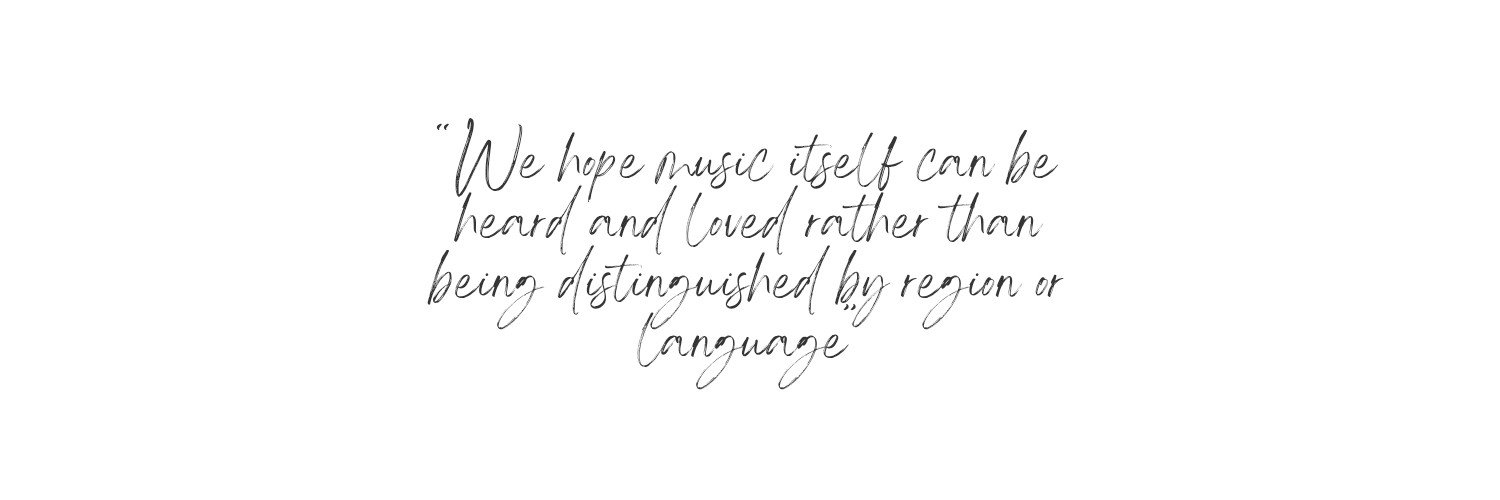 “We hope music itself can be
heard and loved rather than
being distinguished by region or
language”